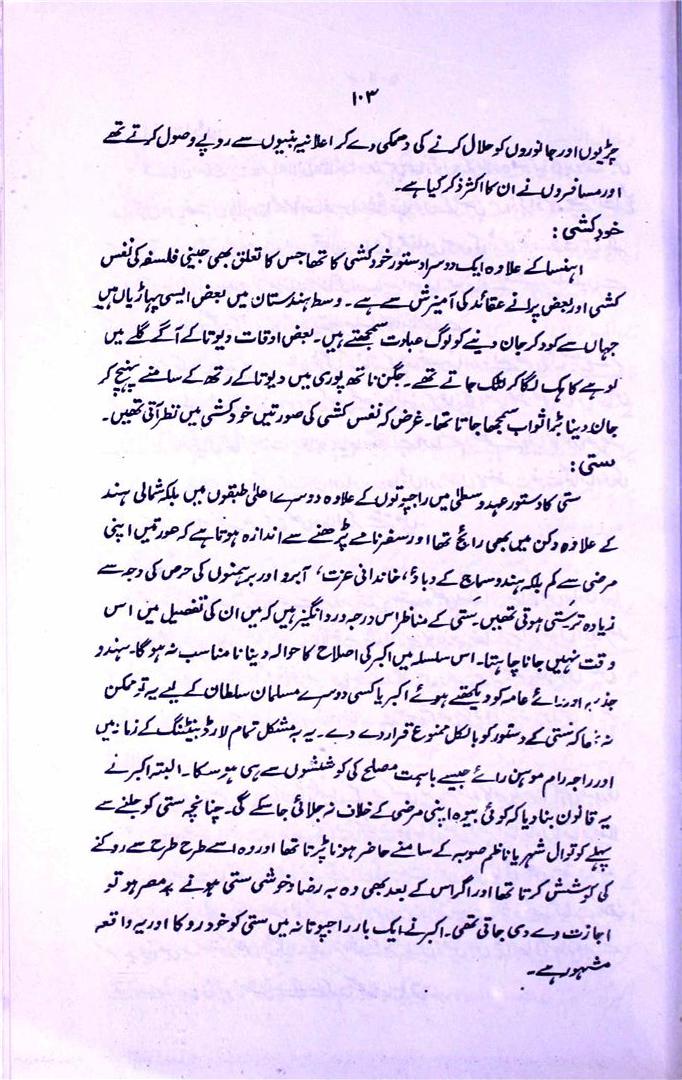 ۱۰۳
چڑیوں اور جانوروں کو حلال کرنے کی دھمکی دے کر اعلانیہ بنیوں سے روپے وصول کرتے تھے
اور مسافروں نے ان کا اکثر ذکر کیا ہے۔
خودکشی :
اہنسا کے علاوہ ایک دوسرا دستور خودکشی کا تھا جس کا تعلق بھی جینی فلسفہ کی نفس
کشی اور بعض پرانے عقائد کی آمیزش سے ہے۔ وسط ہندستان میں بعض ایسی پہاڑیاں ہیں
جہاں سے کود کر جان دینے کو لوگ عبادت سمجھتے ہیں۔ بعض اوقات دیوتا کے آگے گلے میں
لوہے کا ہک لگا کر لٹک جاتے تھے۔ جگن ناتھ پوری میں دیوتا کے رتھ کے سامنے پہنچ کر
جان دینا بڑا ثواب سمجھا جاتا تھا۔ غرض کہ نفس کشی کی صورتیں خودکشی میں نظر آتی تھیں۔
ستی :
ستی کا دستور عہد وسطیٰ میں راجپوتوں کے علاوہ دوسرے اعلیٰ طبقوں میں بلکہ شمالی ہند
کے علاوہ دکن میں بھی رائج تھا اور سفرنامے پڑھنے سے اندازہ ہوتا ہے کہ عورتیں اپنی
مرضی سے کم بلکہ ہندو سماج کے دباؤ، خاندانی عزت، آبرو اور برہمنوں کی حرص کی وجہ سے
زیادہ تر ستی ہوتی تھیں۔ ستی کے مناظر اس درجہ درد انگیز ہیں کہ میں ان کی تفصیل میں اس
وقت نہیں جانا چاہتا۔ اس سلسلہ میں اکبر کی اصلاح کا حوالہ دینا نامناسب نہ ہوگا۔ ہندو
جذبہ اور رائے عامہ کو دیکھتے ہوئے اکبر یا کسی دوسرے مسلمان سلطان کے لیے یہ تو ممکن
نہ تھا کہ ستی کے دستور کو بالکل ممنوع قرار دے دے۔ یہ بہ مشکل تمام لارڈ بینٹنگ کے زمانہ میں
اور راجہ رام موہن رائے جیسے باہمت مصلح کی کوششوں سے ہی ہو سکا۔ البتہ اکبر نے
یہ قانون بنا دیا کہ کوئی بیوہ اپنی مرضی کے خلاف نہ جلائی جا سکے گی۔ چنانچہ ستی کو جلنے سے
پہلے کوتوال شہر یا ناظم صوبہ کے سامنے حاضر ہونا پڑتا تھا اور وہ اسے طرح طرح سے روکنے
کی کوشش کرتا تھا اور اگر اس کے بعد بھی وہ بہ رضا و خوشی ستی ہونے پر مصر ہو تو
اجازت دے دی جاتی تھی۔ اکبر نے ایک بار راجپوتانہ میں ستی کو خود روکا اور یہ واقعہ
مشہور ہے۔